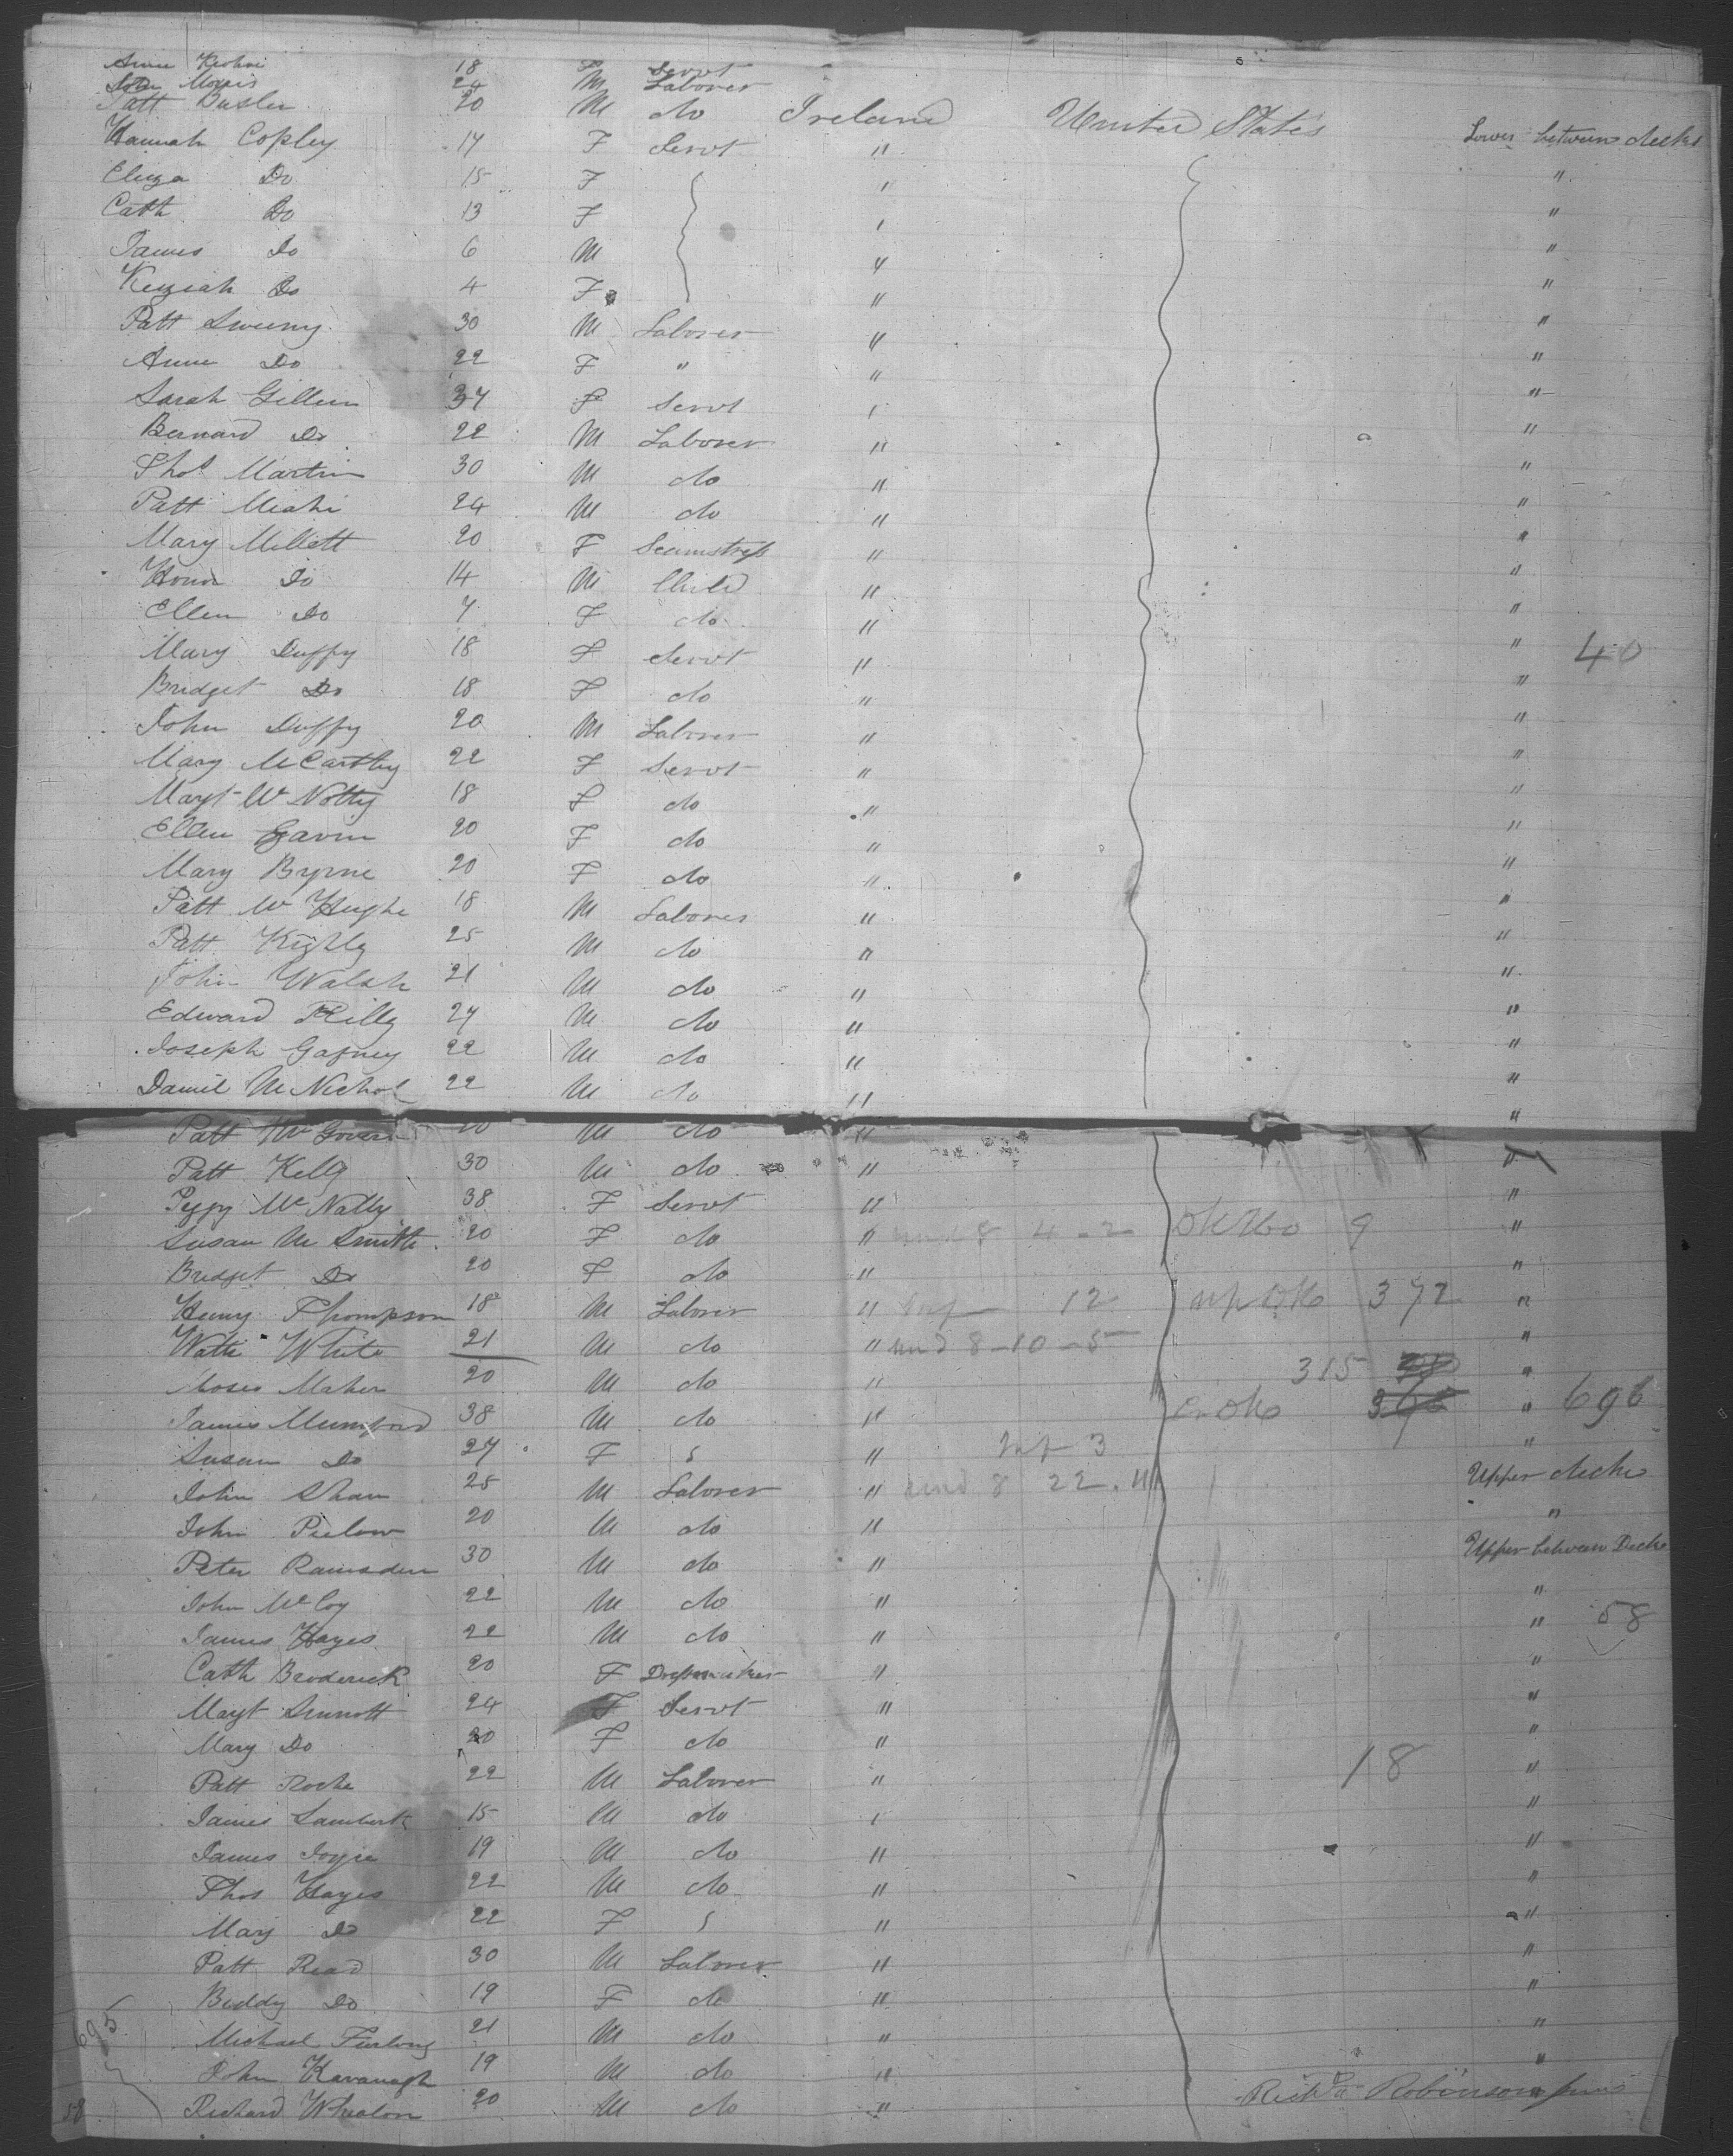 Anne 18 F Servt "
John Morris 24 M Laborer
Patt Butler 20 M do Ireland United States Lower between decks
Hannah Copley 17 F Servt " "
Eliza Do 15 F " "
Cath Do 13 F " "
James Do 6 M " "
Keziah Do 4 F " "
Patt Sweeny 30 M Laborer " "
Anne Do 22 F " " "
Sarah Gillen 37 F Servt " "
Bernard Do 22 M Laborer " "
Thos Martin 30 M do " "
Patt 24 M do " "
Mary Millett 20 F Seamstress " "
Honor Do 14 M Child " "
Ellen Do 7 F do " "
Mary Duffy 18 F Servt " " 40
Bridget Do 18 F do " "
John Duffy 20 M Laborer " "
Mary McCarthy 22 F Servt " "
Margt 18 F do " "
Ellen Gavin 20 F do " "
Mary Byrne 20 F do " "
Patt Mc Hughe 18 M Laborer " "
Patt Kighly 25 M do " "
John Walsh 21 M do " "
Edward Rilly 27 M do " "
Joseph Gafney 22 M do " "
Daniel McNichol 22 M do " "
Patt McGovern 20 M do " "
Patt Kelly 30 M do " "
Peggy McNally 38 F Servt " "
Susan Mc Smith 20 F do " 4 - 2 9 "
Bridget Do 20 F do " "
Henry Thompson 18 M Laborer " 12 372 "
White 21 M do " und 8 - 10 - 5 "
Moses Maher 20 M do " 315 "
James Mumford 38 M do " " 696
Susan Do 27 F " Inf 3 "
John Shaw 25 M Laborer " und 8 22. 11 Upper decks
John Pielow 20 M do " "
Peter Ramsden 30 M do " Upper between Decks
John McCoy 22 M do " "
James Hayes 22 M do " " 58
Cath Broderick 20 F Dressmaker " "
Margt Sinnott 24 F Servt " "
Mary Do 20 F do " "
Patt Roche 22 M Laborer " 18 "
James Lambert 15 M do " "
James Joyce 19 M do " "
Thos Hayes 22 M do " "
Mary Do 22 F " "
Patt Read 30 M Laborer " "
Biddy Do 19 F do " "
695 Michael Furlong 21 M do " "
John Kavanagh 19 M do " "
58 Richard Whealon 20 M do " Richd Robinson